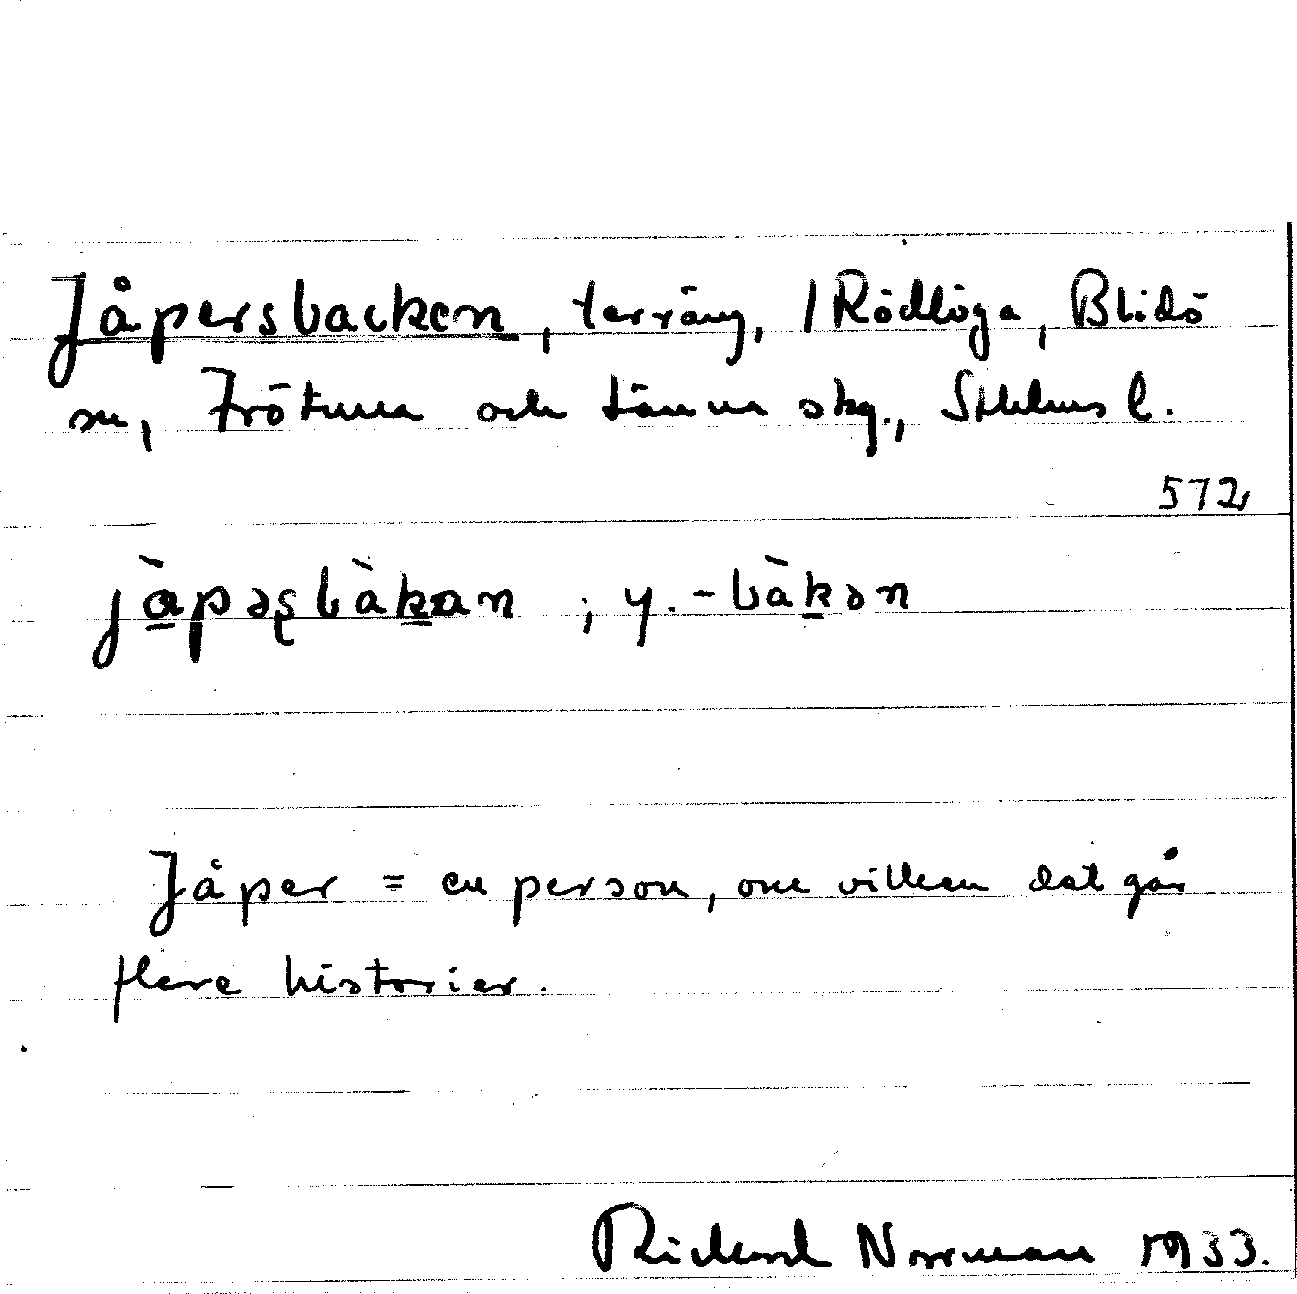 Jåpersbacken, terräng, /Rödlöga, Blidö
sn, Frötuna och Länna skg., Sthlms l.
572
jå̀pəʂbàkan ; y. -bàkən
Jåper = en person, om vilken det går
flera historier.
Rickard Norrman 1933.